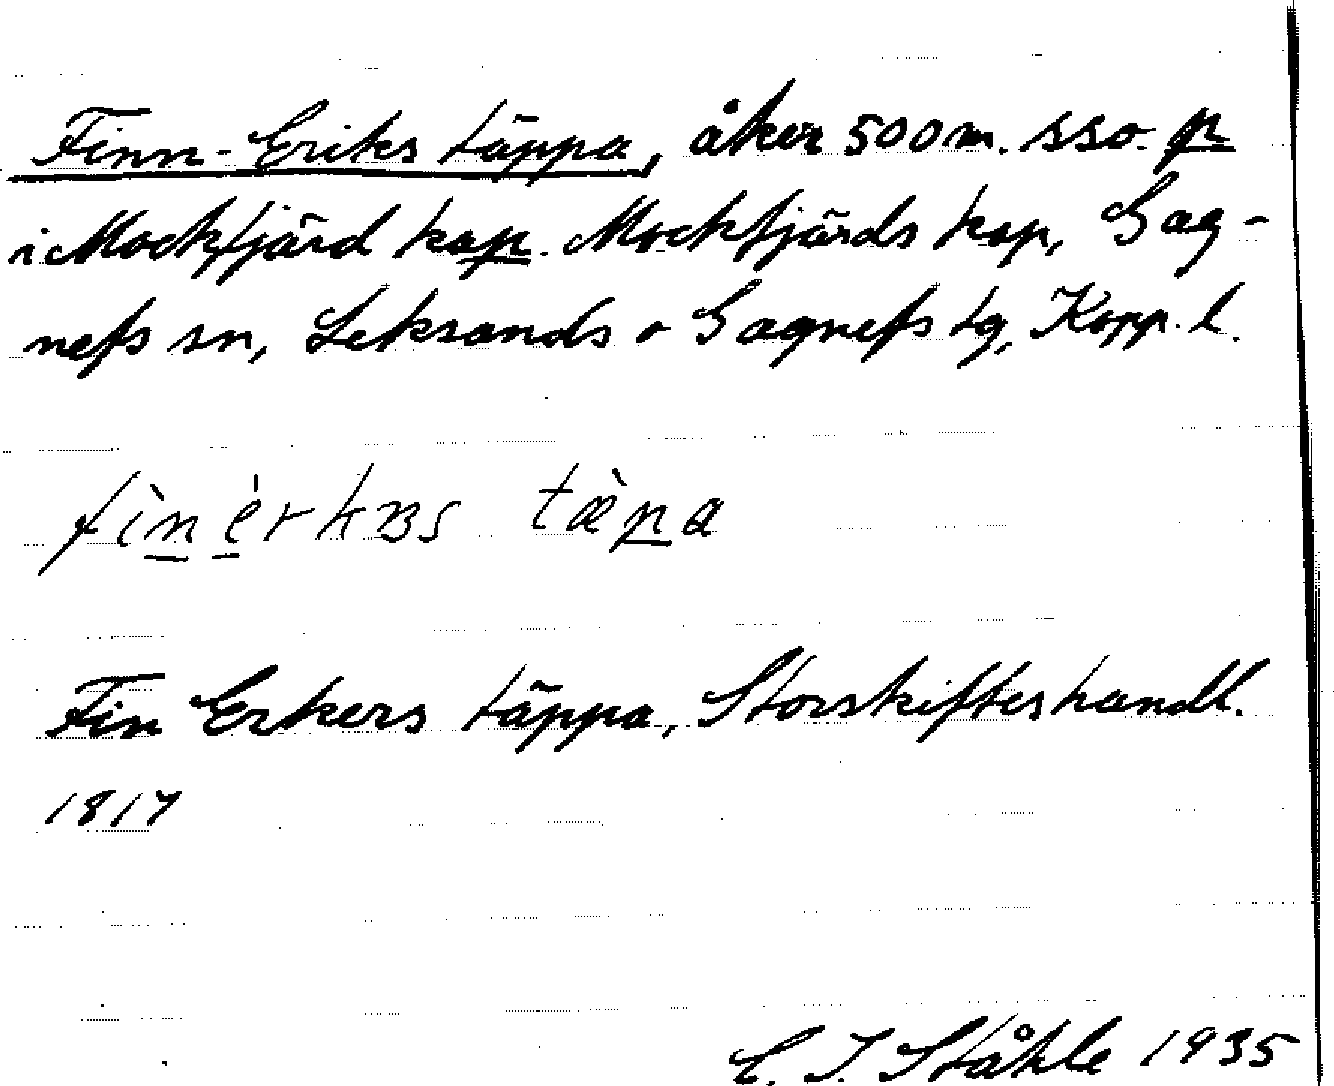 Finn-Eriks täppa, åker 500 m. sso. p
i Mockfjärd kap. Mockfjärds kap, Gag-
nefs sn, Leksands o Gagnefs tg, Kopp. l.
fìnérkɜs tæ̀pa
Fin Erkers täppa, Storskifteshandl.
1817
C. I. Ståhle 1935